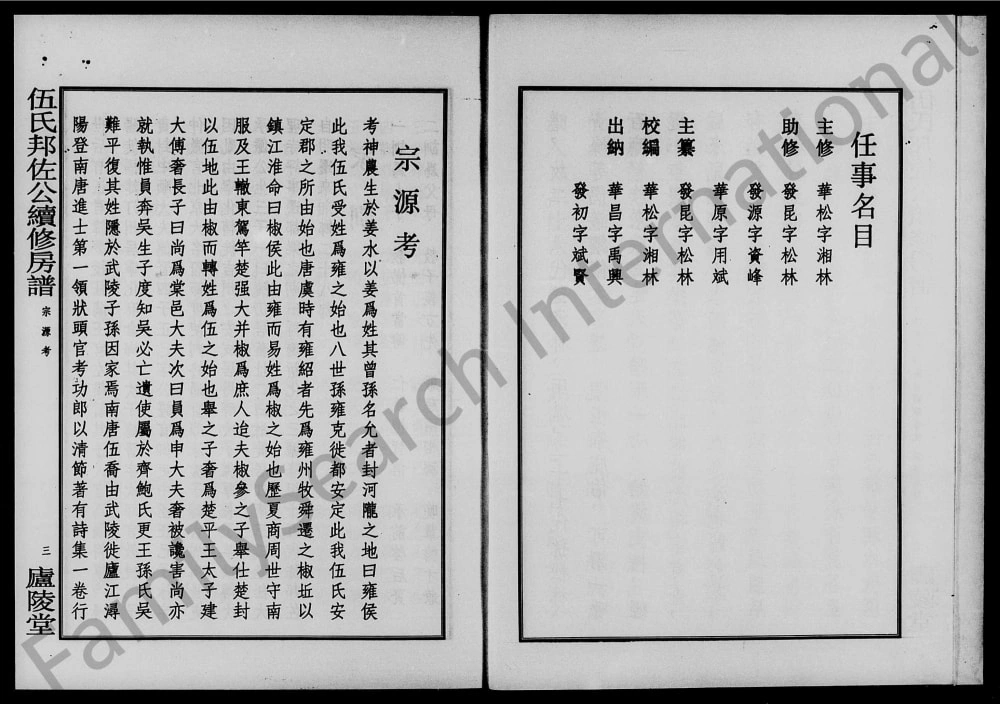 任事名目
主修　華松字湘林
助修　發昆字松林
發源字資峰
華原字用斌
主纂　發昆字松林
校編　華松字湘林
出納　華昌字禹興
發初字斌賢
宗源考
考神農生於姜水以姜爲姓其曾孫名允者封河隴之地曰雍侯
此我伍氏受姓爲雍之始也八世孫雍克徙都安定此我伍氏安
定郡之所由始也唐虞時有雍紹者先爲雍州牧舜遷之椒坵以
鎮江淮命曰椒侯此由雍而易姓爲椒之始也歷夏商周世守南
服及王轍東駕竿楚强大并椒爲庶人迨夫椒參之子舉仕楚封
以伍地此由椒而轉姓爲伍之始也舉之子奢爲楚平王太子建
大傅奢長子曰尚爲棠邑大夫次曰員爲申大夫奢被讒害尚亦
就執惟員奔吳生子度知吳必亡遺使屬於齊鮑氏更王孫氏吳
難平復其姓隱於武陵子孫因家焉南唐伍喬由武陵徙廬江潯
陽登南唐進士第一領狀頭官考功郎以清節著有詩集一卷行
伍氏邦佐公續修房譜
宗源考
三
廬陵堂
FamilySearch International